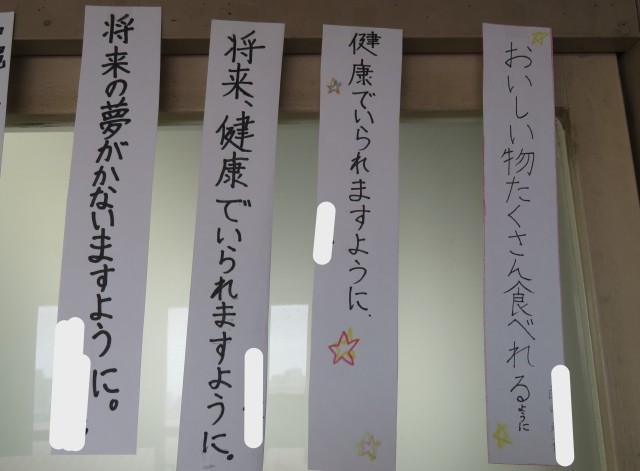 将来の夢がかないますように。
将来、健康でいられますように。
健康でいられますように.
おいしい物たくさん食べれるように